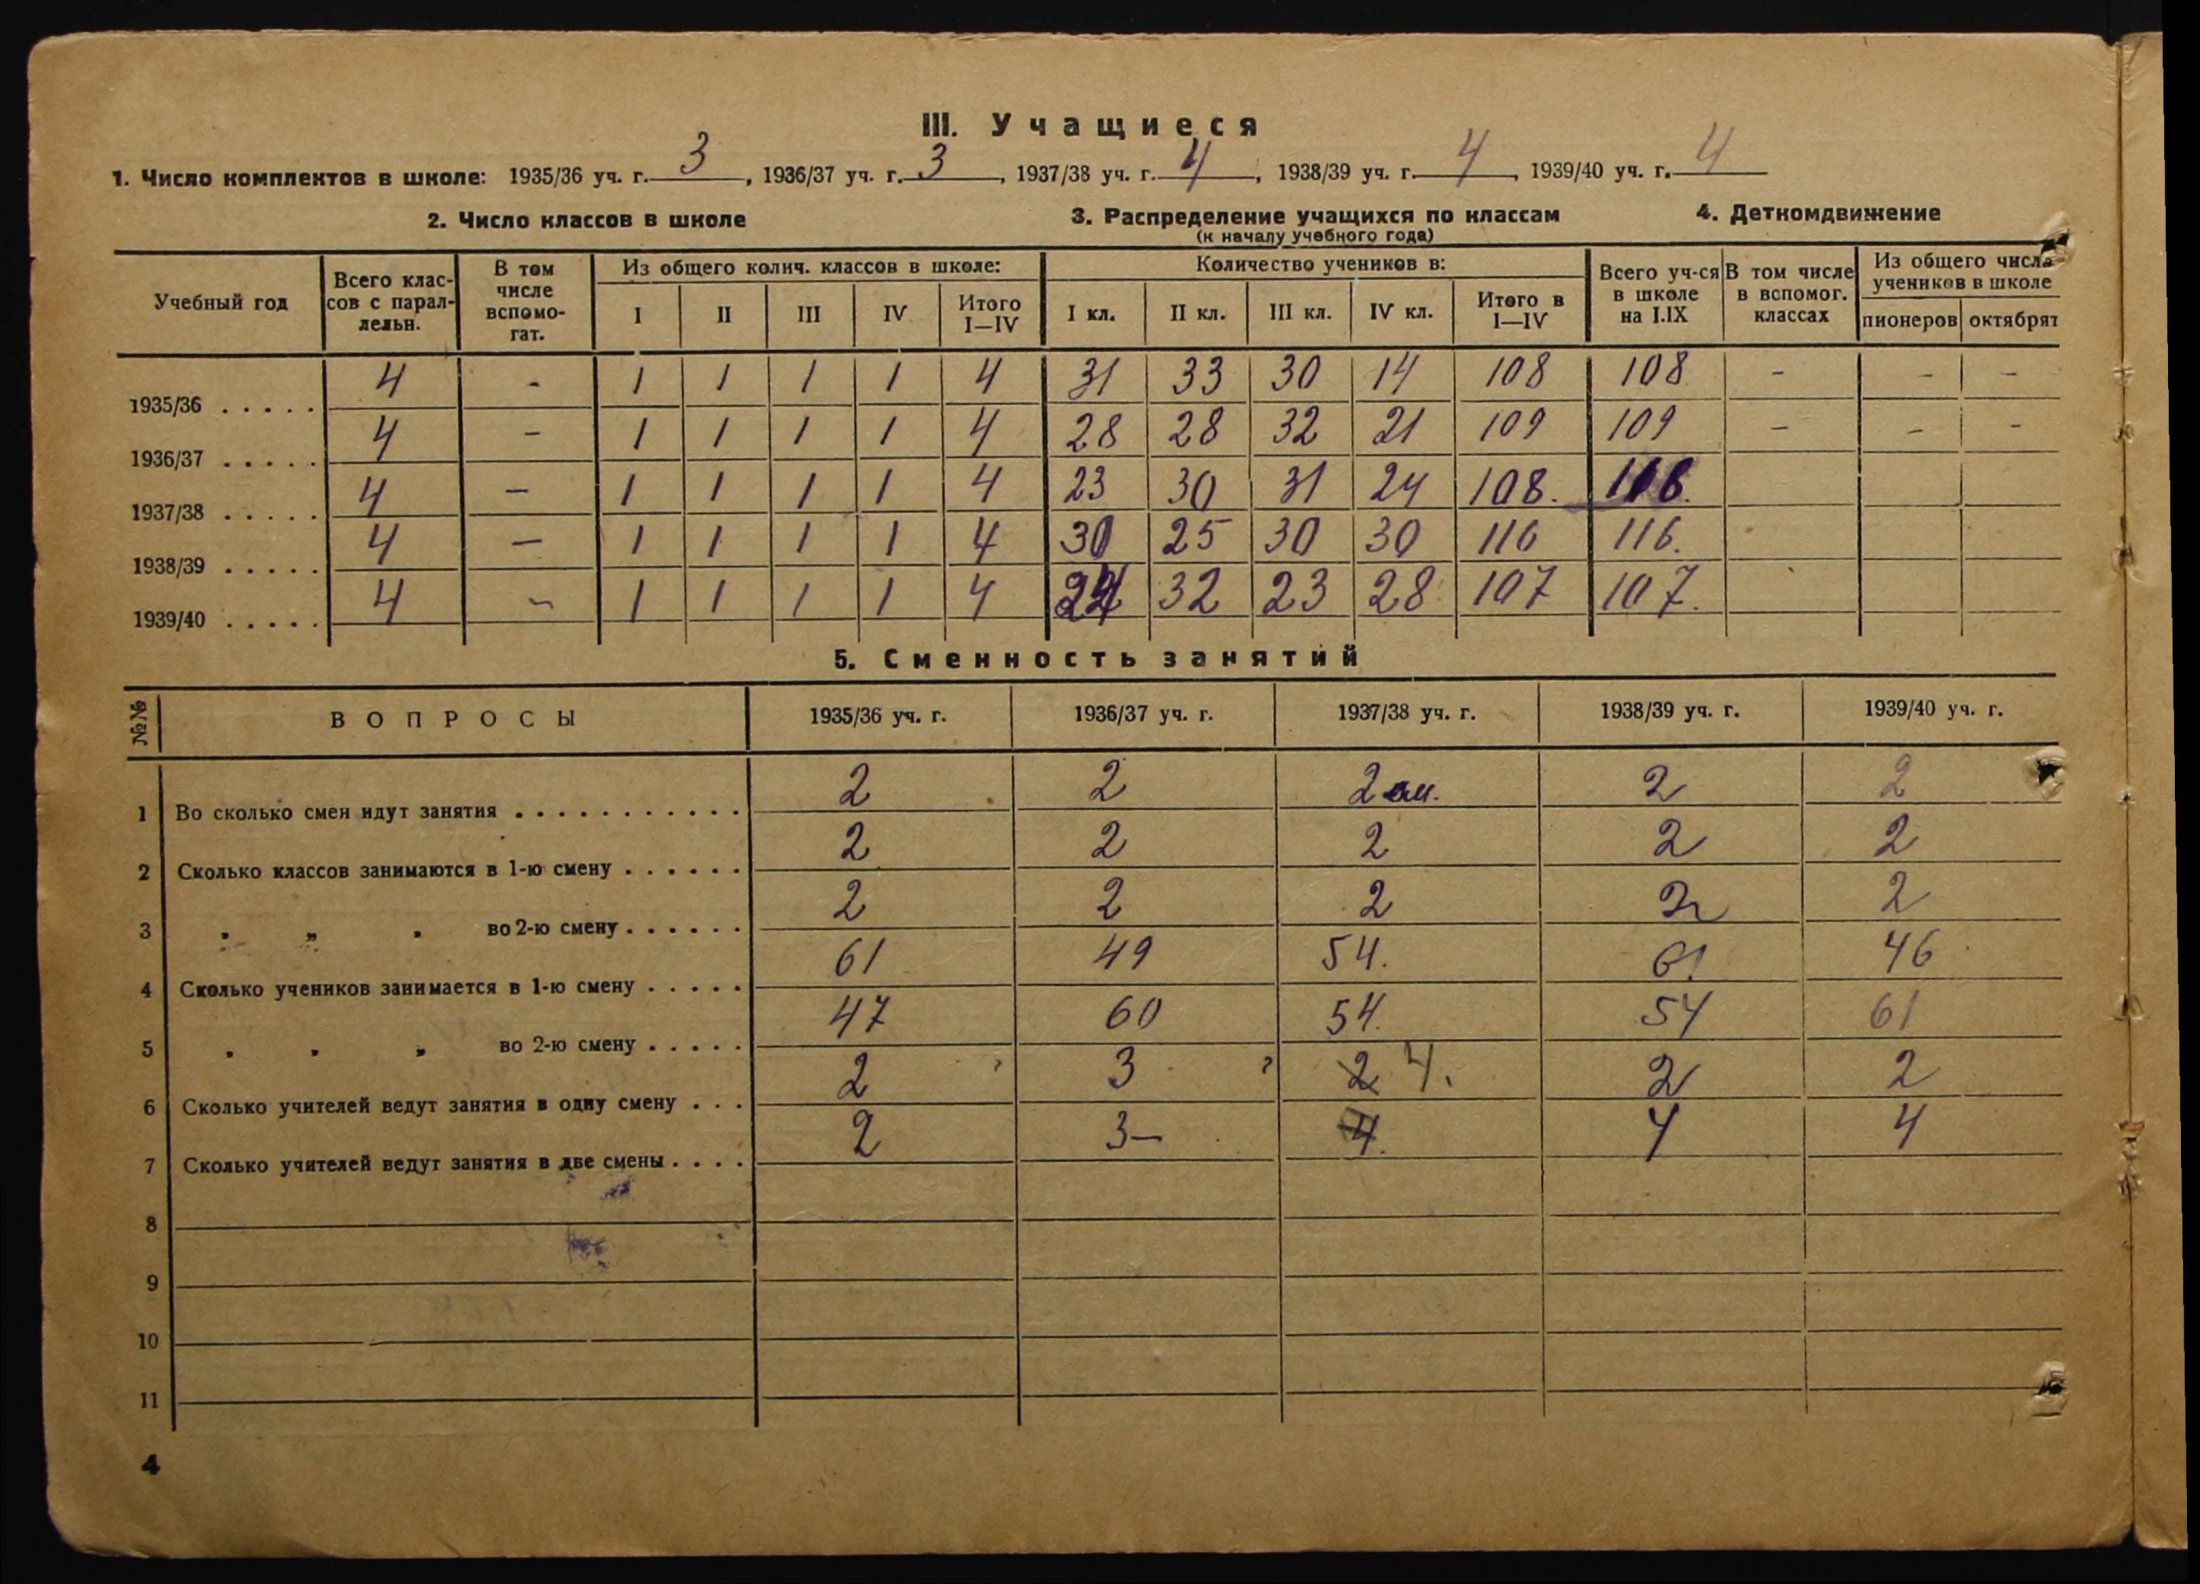 III. Учащиеся
1. Число комплектов в школе: 1935/36 уч. г. 3, 1936/37 уч. г. 3, 1937/38 уч. г. 4, 1938/39 уч. г. 4, 1939/40 уч. г. 4
2. Число классов в школе 3. Распределение учащихся по классам 4. Деткомдвижение
(к началу учебного года)
Учебный год Всего классов с паралельн. В том числе вспомогат. Из общего колич. классов в школе: Количество учеников в: Всего уч-ся в школе на I.IX В том числе в вспомог. классах Из общего числа учеников в школе
I II III IV Итого I—IV I кл. II кл. III кл. IV кл. Итого в I—IV пионеров октябрят
1935/36 . . . . . 4 - 1 1 1 1 4 31 33 30 14 108 108 - - -
1936/37 . . . . . 4 - 1 1 1 1 4 28 28 32 21 109 109 - - -
1937/38 . . . . . 4 - 1 1 1 1 4 23 30 31 24 108.
1938/39 . . . . . 4 - 1 1 1 1 4 30 25 30 30 116 116.
1939/40 . . . . . 4 - 1 1 1 1 4 24 32 23 28 107 107.
5. Сменность занятий
№№ ВОПРОСЫ 1935/36 уч. г. 1936/37 уч. г. 1937/38 уч. г. 1938/39 уч. г. 1939/40 уч. г.
1 Во сколько смен идут занятия . . . . . . . . . . . 2 2 2 см. 2 2
2 Сколько классов занимаются в 1-ю смену . . . . . . 2 2 2 2 2
3 " " " во 2-ю смену . . . . . . 2 2 2 2 2
4 Сколько учеников занимается в 1-ю смену . . . . . 61 49 54. 61. 46
5 " " " во 2-ю смену . . . . . 47 60 54. 54 61
6 Сколько учителей ведут занятия в одну смену . . . 2 ? 3 ? 2 4. 2 2
7 Сколько учителей ведут занятия в две смены . . . . 2 3- 4. 4 4
8
9
10
11
4